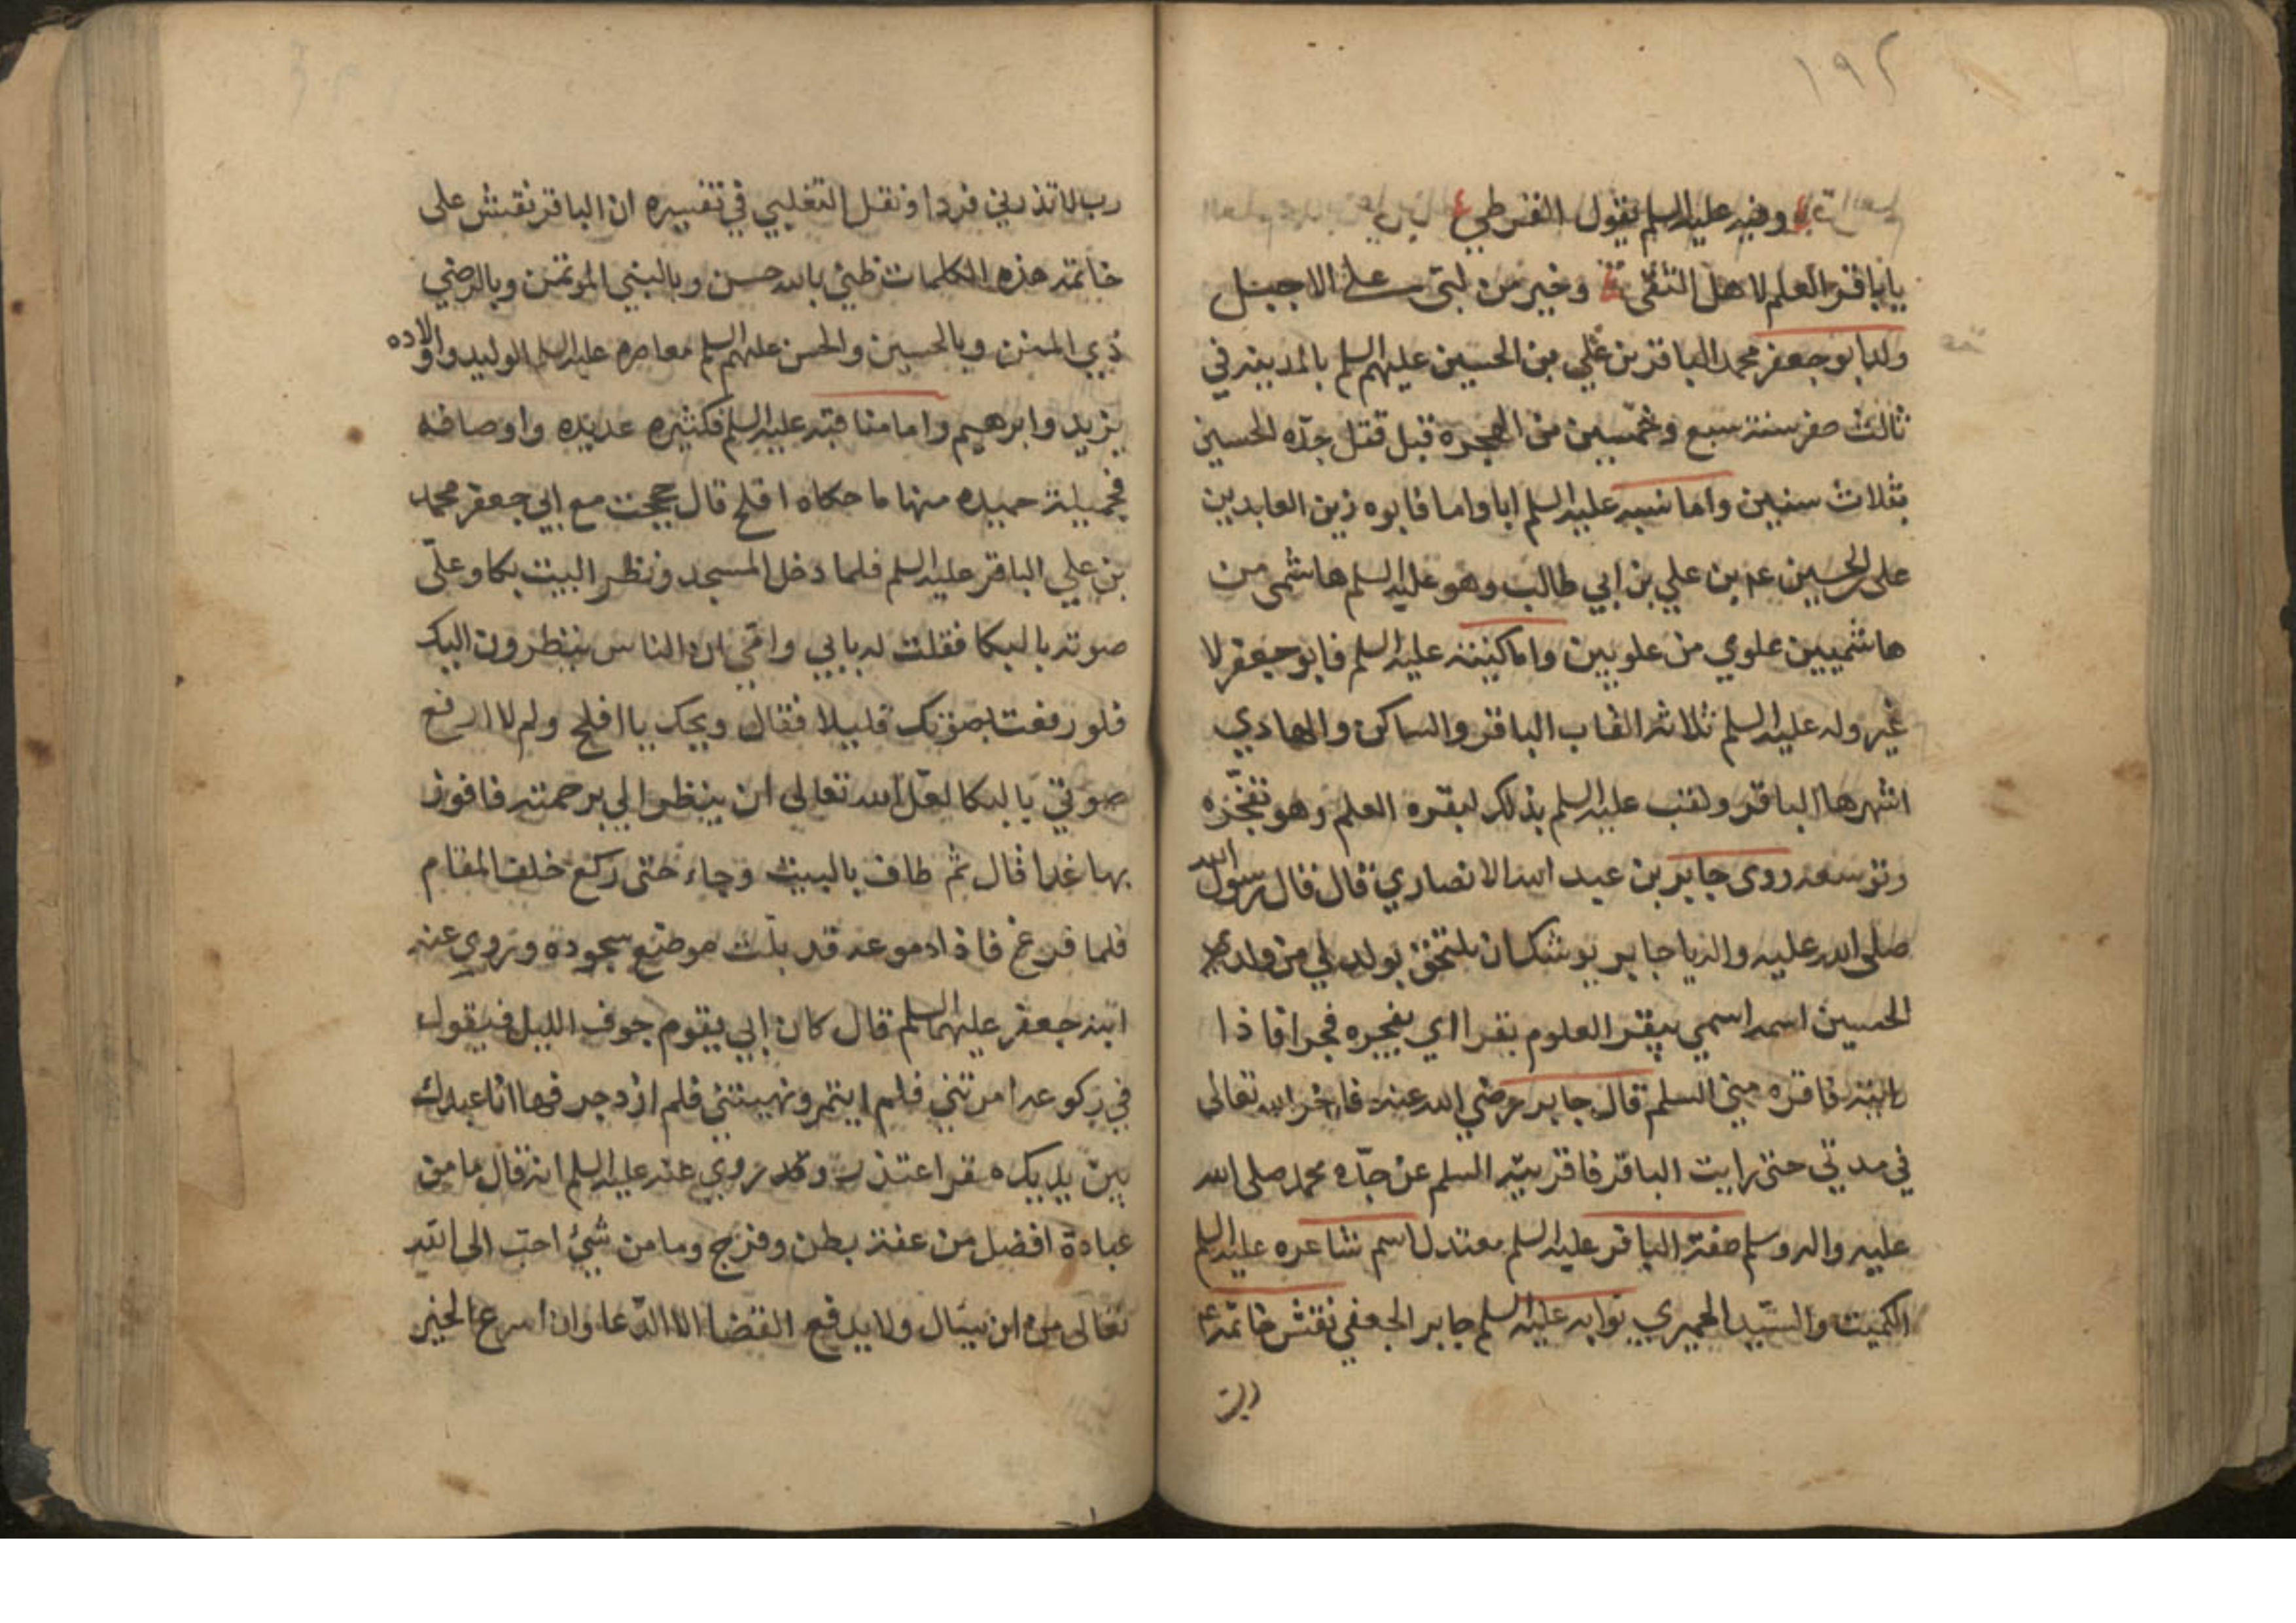 ١٩٢
وفيه عليه السلم يقول القرطبي
يا باقر العلم لاهل التقى وخير من لبى على الاجبل
ولد ابو جعفر محمد الباقر بن علي بن الحسين عليهم السلم بالمدينه في
ثالث صفر سنة سبع وخمسين من الهجره قبل قتل جدّه الحسين
بثلاث سنين واما نسبه عليه السلم ابا واما فابوه زين العابدين
على بن الحسين بن علي بن ابي طالب وهو عليه السلم هاشمى من
هاشميين علوي من علويين واما كنيته عليه السلم فابو جعفر لا
غير وله عليه السلم ثلاثه القاب الباقر والشاكر والهادي
اشهرها الباقر ولقب عليه السلم بذلك لبقره العلم وهو تفجّره
وتوسعه روى جابر بن عبد الله الانصاري قال قال رسول الله
صلى الله عليه واله يا جابر يوشك ان تلتحق بولد لي من ولدي
الحسين اسمه اسمي يبقر العلوم بقرا اي يفجره فجرا فاذا
رايته فاقره مني السلم قال جابر رضي الله عنه فاخر الله تعالى
في مدتي حتى رايت الباقر فاقريته السلم عن جدّه محمد صلى الله
عليه واله وسلم صفة الباقر عليه السلم معتدل اسمر شاعره عليه السلم
الكميت والسّيد الحميري بوابه عليه السلم جابر الجعفي نقش خاتمه
رب
رب لا تذرني فردا ونقل الثعلبي في تفسيره ان الباقر نقش على
خاتمه هذه الكلمات ظني بالله حسن وبالنبي الموتمن وبالوصي
ذي المنن وبالحسين والحسن عليهم السلم معاصره عليه السلم الوليد واولاده
يزيد وابرهيم واما مناقبه عليه السلم فكثيره عديده واوصافه
فجميلة حميده منها ما حكاه افلح قال حججت مع ابي جعفر محمد
بن علي الباقر عليه السلم فلما دخل المسجد ونظر البيت بكا وعلّى
صوته بالبكا فقلت له بابي وامّي ان الناس ينظرون اليك
فلو رفعت بصوتك قليلا فقال ويحك يا افلح ولم لا ارفع
صوتي بالبكا لعلّ الله تعالى ان ينظر الي برحمته فافوز
بها غدا قال ثم طاف بالبيت وجاء حتى ركع خلف المقام
فلما فرغ فاذا دموعه قد بلّت موضع سجوده وروي عنه
ابنه جعفر عليهما السلم قال كان ابي يقوم جوف الليل فيقول
في ركوعه امرتني فلم ايتمر ونهيتني فلم ازدجر فها انا عبدك
بين يديك مقر اعتذر وقد روي عنه عليه السلم انه قال ما من
عبادة افضل من عفة بطن وفرج وما من شيئ احب الى الله
تعالى من ان يسال ولا يدفع القضا الا الدّعا وان اسرع الخير